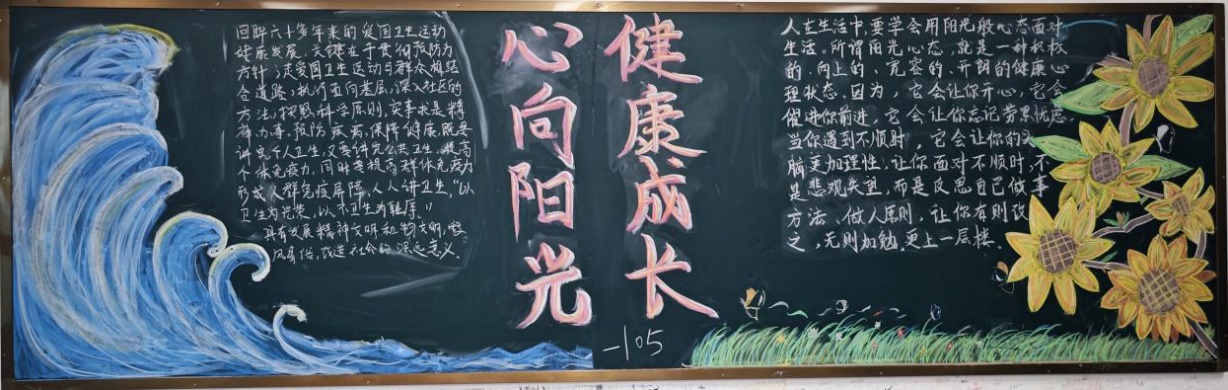 回眸六十多年来的爱国卫生运动
健康发展，关键在于贯彻预防为
方针，走爱国卫生运动与群众相结
合道路，执行面向基层，深入社区的
方法，按照科学原则，实事求是精
神办事，预防疾病，保障健康，既要
讲究个人卫生，又要讲究公共卫生，提高
个体免疫力，同时要提高群体免疫力
形成人群免疫屏障，人人讲卫生，“以
卫生为光荣，以不卫生为耻辱。”
具有发展精神文明和物文明，移
风易俗，改造社会的深远意义.
心向阳光
健康成长
-105
人在生活中，要学会用阳光般心态面对
生活。所谓阳光心态，就是一种积极
的、向上的、宽容的、开朗的健康心
理状态。因为，它会让你开心，它会
促进你前进，它会让你忘记劳累忧虑。
当你遇到不顺时，它会让你的
脑更加理性，让你面对不顺时，不
是悲观失望，而是反思自己做事
方法、做人原则，让你有则改
之，无则加勉，更上一层楼。